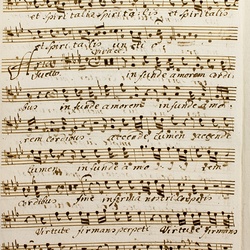 et spiritalis spiritalis et spiritalis
et spiritalis unctio
Duetto infunde amorem cordi
bus infunde amorem infunde amo
rem cordibus accende lumen accende
lumen infunde amo rem
Cordibus infirma nostri corporis
Virtute firmans perpeti Virtute firmans